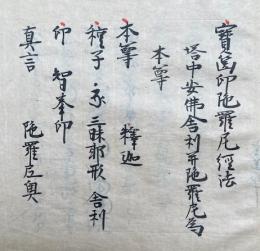 寶篋印陀羅尼經法
塔中安佛舍利并陀羅尼為
本尊
本尊 釋迦
種子 𑖥 三昧耶形 舍利
印 智拳印
真言 陀羅尼奧